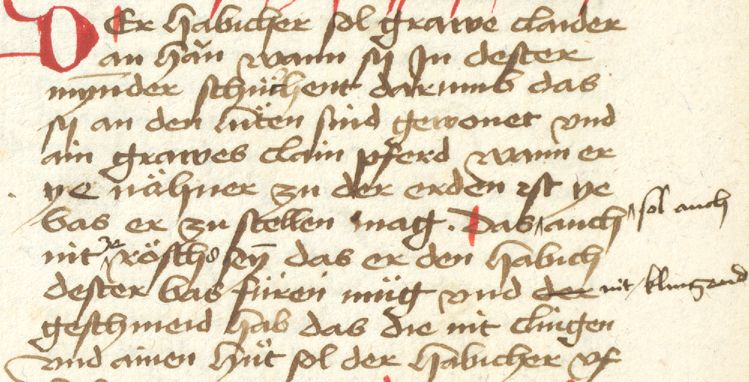 DEr habicher sol grawe claider
an haun wann sy In dester
mynder schühent darumb das
sy an den lüten sind gewonet vnd
ain grawes clain pferd wann er
ye nähner zu der erden ist ye
bas er zu stellen mag. Das auch sol auch
nit ze rösch sey das er den habich
dester bas füren müg vnd der nit klingend
geschmeid hab das die nit clingen
vnd ainen hut sol der habicher vf